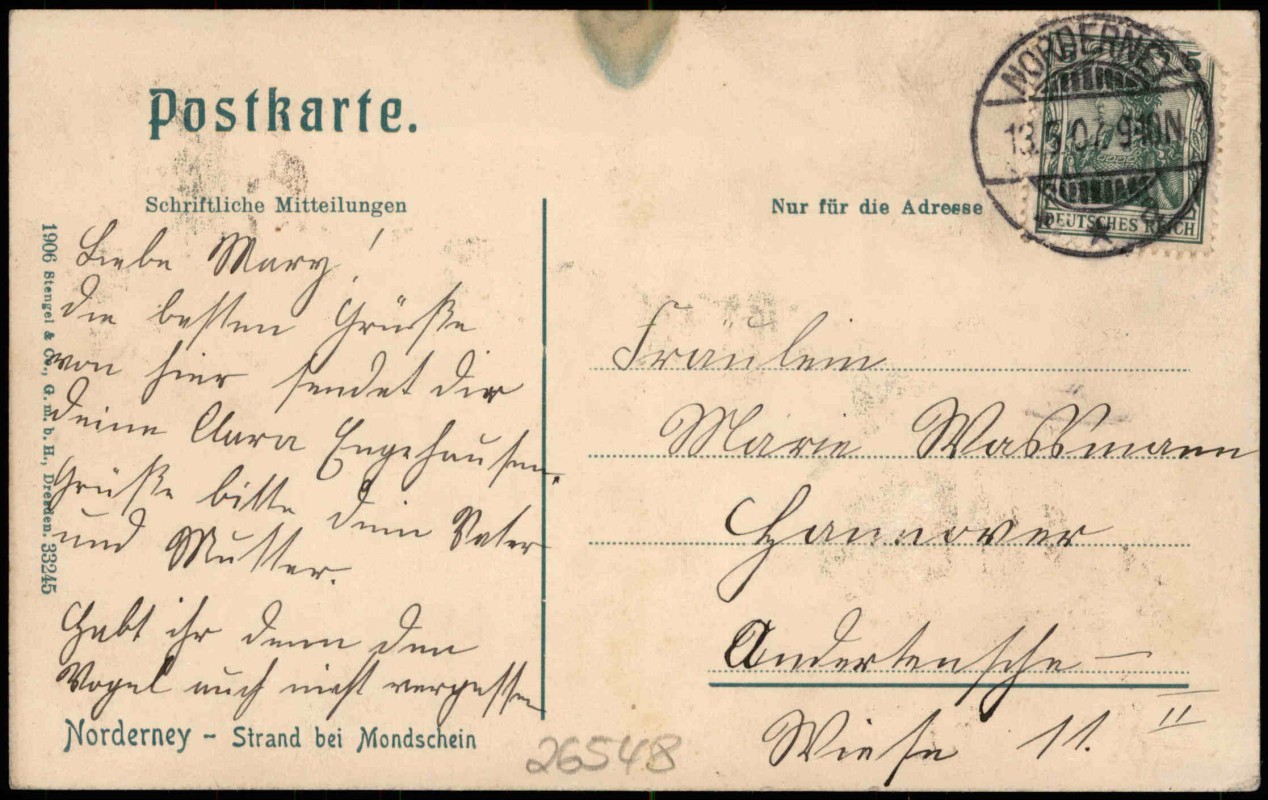 Postkarte.
Schriftliche Mitteilungen
Nur für die Adresse
NORDERNEY
9-10N.
5
DEUTSCHES REICH
1906 Stengel & Co., G. m. b. H., Dresden. 33245
Liebe Mary!
die besten Grüße
von hier sendet dir
deine Clara Engehausen.
Grüße bitte dein Vater
und Mutter.
Habt ihr denn den
Vogel auch nicht vergessen
Norderney - Strand bei Mondschein
26548
Fräulein
Marie Wassmann
Hannover
Andertensche-
Wiese 11. II